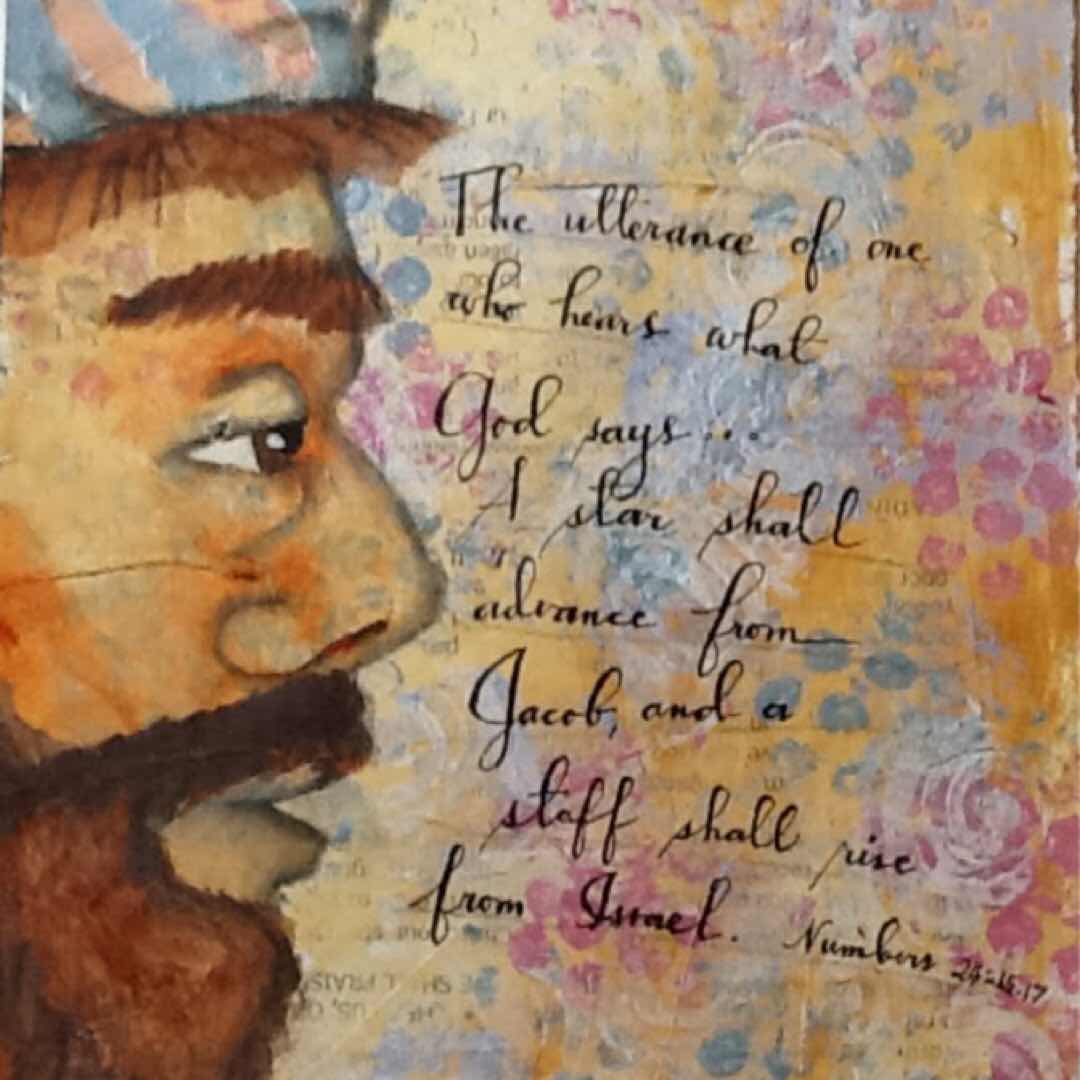 The utterance of one
who hears what
God says...
A star shall
advance from
Jacob, and a
staff shall rise
from Israel. Numbers 24=15.17